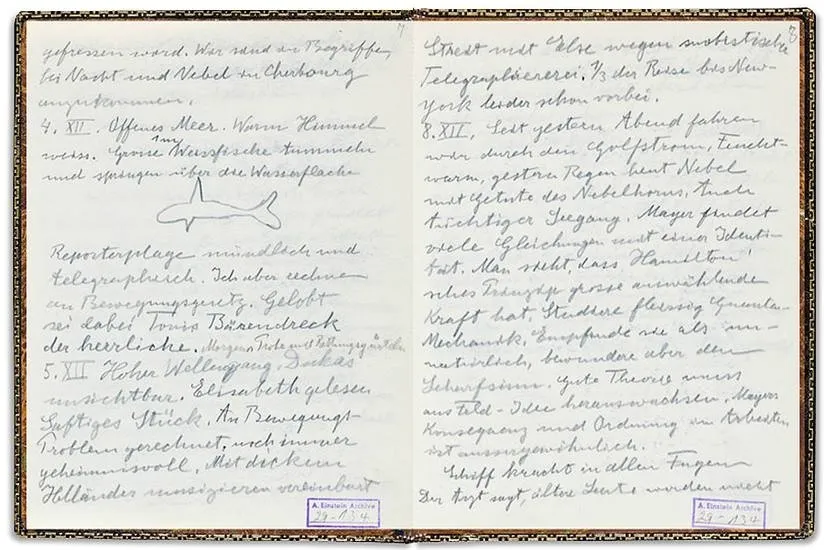 7
gefressen ward. Wir sind im Begriffe,
bei Nacht und Nebel in Cherbourg
anzukommen.
4. XII. Offenes Meer. Warm Himmel
weiss. Grosse Weissfische tummeln
und springen über die Wasserfläche
Reporterplage mündlich und
telegraphisch. Ich aber rechne
an Bewegungsgesetz. Gelobt
sei dabei Tonis Bärendreck
der herrliche. Morgen Probe mit Rettungsgürteln
5. XII Hoher Wellengang. Dukas
unsichtbar. Elisabeth gelesen
Saftiges Stück. An Bewegungs-
Problem gerechnet, noch immer
geheimnisvoll. Mit dickem
Holländer musizieren vereinbart
A. Einstein Archive
29-134
8
Streit mit Else wegen
Telegraphiererei. 1/3 der Reise bis New-
york leider schon vorbei.
8. XII. Seit gestern Abend fahren
wir durch den Golfstrom, Feucht-
warm, gestern Regen heut Nebel
mit Getute des Nebelhorns. Auch
tüchtiger Seegang. Mayer findet
viele Gleichungen mit einer Identi-
tät. Man sieht, dass Hamilton'
sches Prinzip grosse auswählende
Kraft hat. Studiere fleissig Quanten-
Mechanik. Empfinde sie als un-
natürlich, bewundere aber den
Scharfsinn. Gute Theorie muss
aus Feld-Idee herauswachsen. Mayers
Konsequenz und Ordnung im Arbeiten
ist aussergewöhnlich.
Schiff kracht in allen Fugen
Der Arzt sagt, ältere Leute würden nicht
A. Einstein Archive
29-134